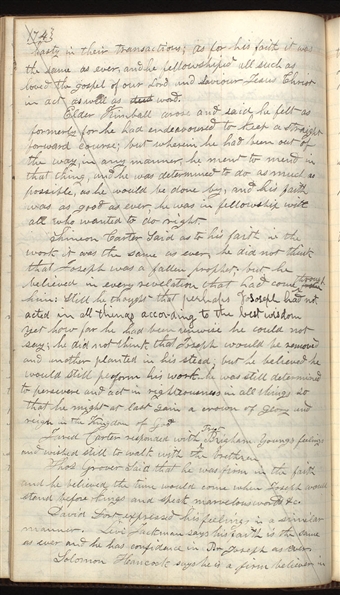 174
hasty in their transactions; as for his faith it was
the same as ever, and he fellowshiped all such as
loved the gospel of our Lord and Saviour Jesus Christ
in act as well as word.
Elder Kimball arose and said, he felt as
formerly for he had endeavoured to keep a straight
forward course; but wherein he had been out of
the way, in any manner, he ment to mend in
that thing, and he was determined to do as much as
possible, as he would be done by, and his faith
was as good as ever, he was in fellowship with
all who wanted to do right.
Simeon Carter Said as to his faith in the
work it was the same as ever, he did not think
that Joseph was a fallen prophet, but he
believed in every revelation that had come through
him: Still he thought that perhaps Joseph had not
acted in all things according to the best wisdom
yet how far he had been unwise he could not
say; he did not think that Joseph would be removed
and another planted in his stead; but he believed he
would still preform his work. he was still determined
to persevere and act in righteousness in all things so
that he might at last gain a crown of Glory and
reign in the Kingdom of God
Jared Carter responded with Brigham Youngs feelings
and wished still to walk with the brethren
Thos Grover Said that he was firm in the faith
and he believed the time would come when Joseph would
stand before kings and speak marvelous words &c.
David Fort expressed his feelings in a similar
manner. Levi Jackman says his faith is the same
as ever and he has confidence in Br. Joseph as ever.
Solomon Hancock says he is a firm believer in